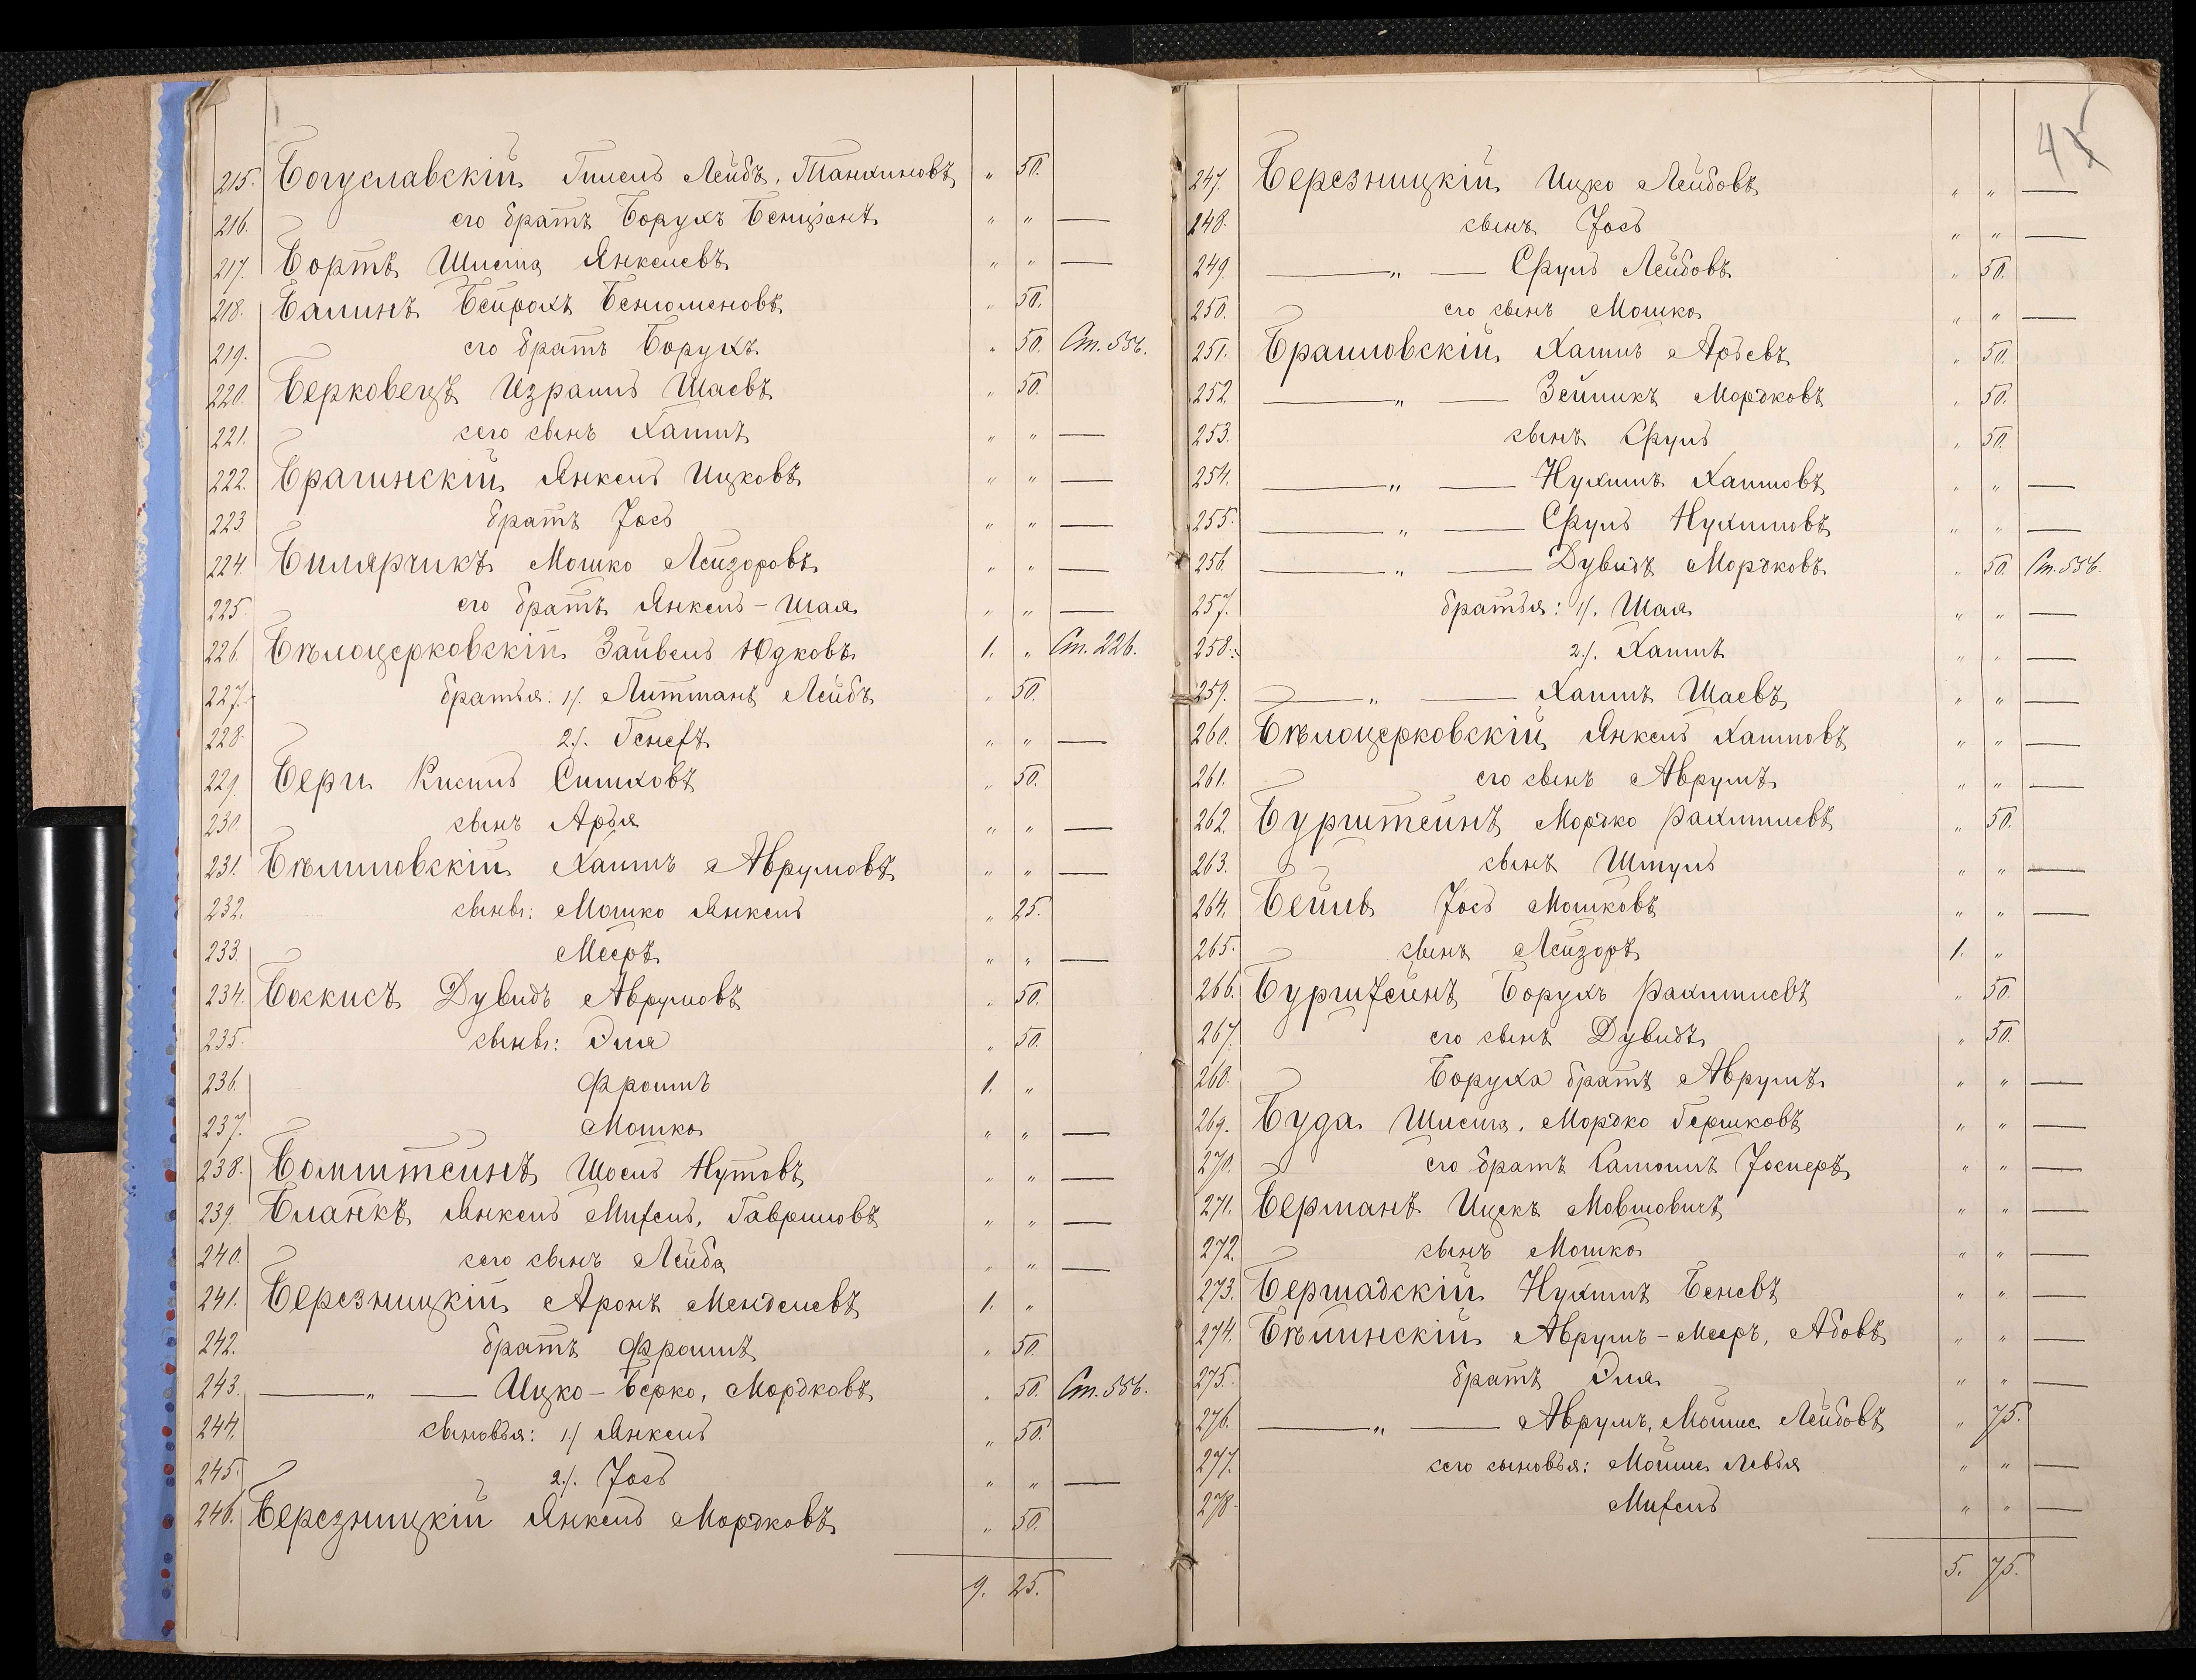 215. Богуславскій Гилель Лейбъ, Танхиновъ „ 50.
216. его братъ Борухъ Бенціонъ „ „ —
217. Бортъ Шлема Янкелевъ „ „ —
218. Балинъ Бейрохъ Бенюменовъ „ 50.
219. его братъ Борухъ „ 50. Ст. 556.
220. Берковецъ Израиль Шаевъ „ 50.
221. его сынъ Хаимъ „ „ —
222. Брагинскій Янкель Ицковъ „ „ —
223 братъ Іось „ „ —
224. Билярчикъ Мошко Лейзоровъ „ „ —
225. его братъ Янкель-Шая „ „ —
226. Бѣлоцерковскій Зайвель Юдковъ 1. „ Ст. 226.
227. братья: 1/. Литманъ Лейбъ „ 50.
228. 2/. Генехъ „ „ —
229. Бери Кисиль Симховъ „ 50.
230. сынъ Арья „ „ —
231. Бѣлиловскій Хаимъ Аврумовъ „ „ —
232. сынъ: Мошко Янкель „ 25.
233. Мееръ „ „ —
234. Боскисъ Дувидъ Аврумовъ „ 50.
235. сынъ: Эля „ 50.
236. Фроимъ 1. „
237. Мошко „ „ —
238. Бомштейнъ Шоель Нутовъ „ „ —
239. Бланкъ Янкель Михель, Гавриловъ „ „ —
240. его сынъ Лейба „ „ —
241. Березницкій Аронъ Менделевъ 1. „
242. братъ Фроимъ „ 50.
243. — „ — Ицко-Берко, Мордковъ „ 50. Ст. 556.
244. сыновья: 1/ Янкель „ 50.
245. 2/. Іось „ „ —
246. Березницкій Янкель Мордковъ „ 50.
9. 25.
45
247. Березницкій Ицко Лейбовъ „ „ —
248. сынъ Іось „ „ —
249. — „ — Сруль Лейбовъ „ 50.
250. его сынъ Мошко „ „ —
251. Браиловскій Хаимъ Арьевъ „ 50.
252. — „ — Зейликъ Мордковъ „ 50.
253. сынъ Сруль „ 50.
254. — „ — Нухимъ Хаимовъ „ „ —
255. — „ — Сруль Нухимовъ „ „ —
256. — „ — Дувидъ Мордковъ „ 50. Ст. 556.
257. братья: 1/. Шая „ „ —
258. 2/. Хаимъ „ „ —
259. — „ — Хаимъ Шаевъ „ „ —
260. Бѣлоцерковскій Янкель Хаимовъ „ „ —
261. его сынъ Аврумъ „ „ —
262. Бурштейнъ Мордко Рахмилевъ „ 50.
263. сынъ Шмуль „ „ —
264. Бейль Іось Мошковъ „ „ —
265. сынъ Лейзоръ 1. „
266. Бурштейнъ Борухъ Рахмилевъ „ 50.
267. его сынъ Дувидъ „ 50.
268. Боруха братъ Аврумъ „ „ —
269. Буда Шлема, Мордко Гершковъ „ „ —
270. его братъ Іосперъ „ „ —
271. Берманъ Ицекъ Мовшовичъ „ „ —
272. сынъ Мошко „ „ —
273. Бершадскій Нухимъ Беневъ „ „ —
274. Бѣлинскій Аврумъ-Мееръ, Абовъ „ „ —
275. братъ Эля „ „ —
276. — „ — Аврумъ, Мойше Лейбовъ „ 75.
277. его сыновья: Мойше Левья „ „ —
278. Михель „ „ —
5. 75.